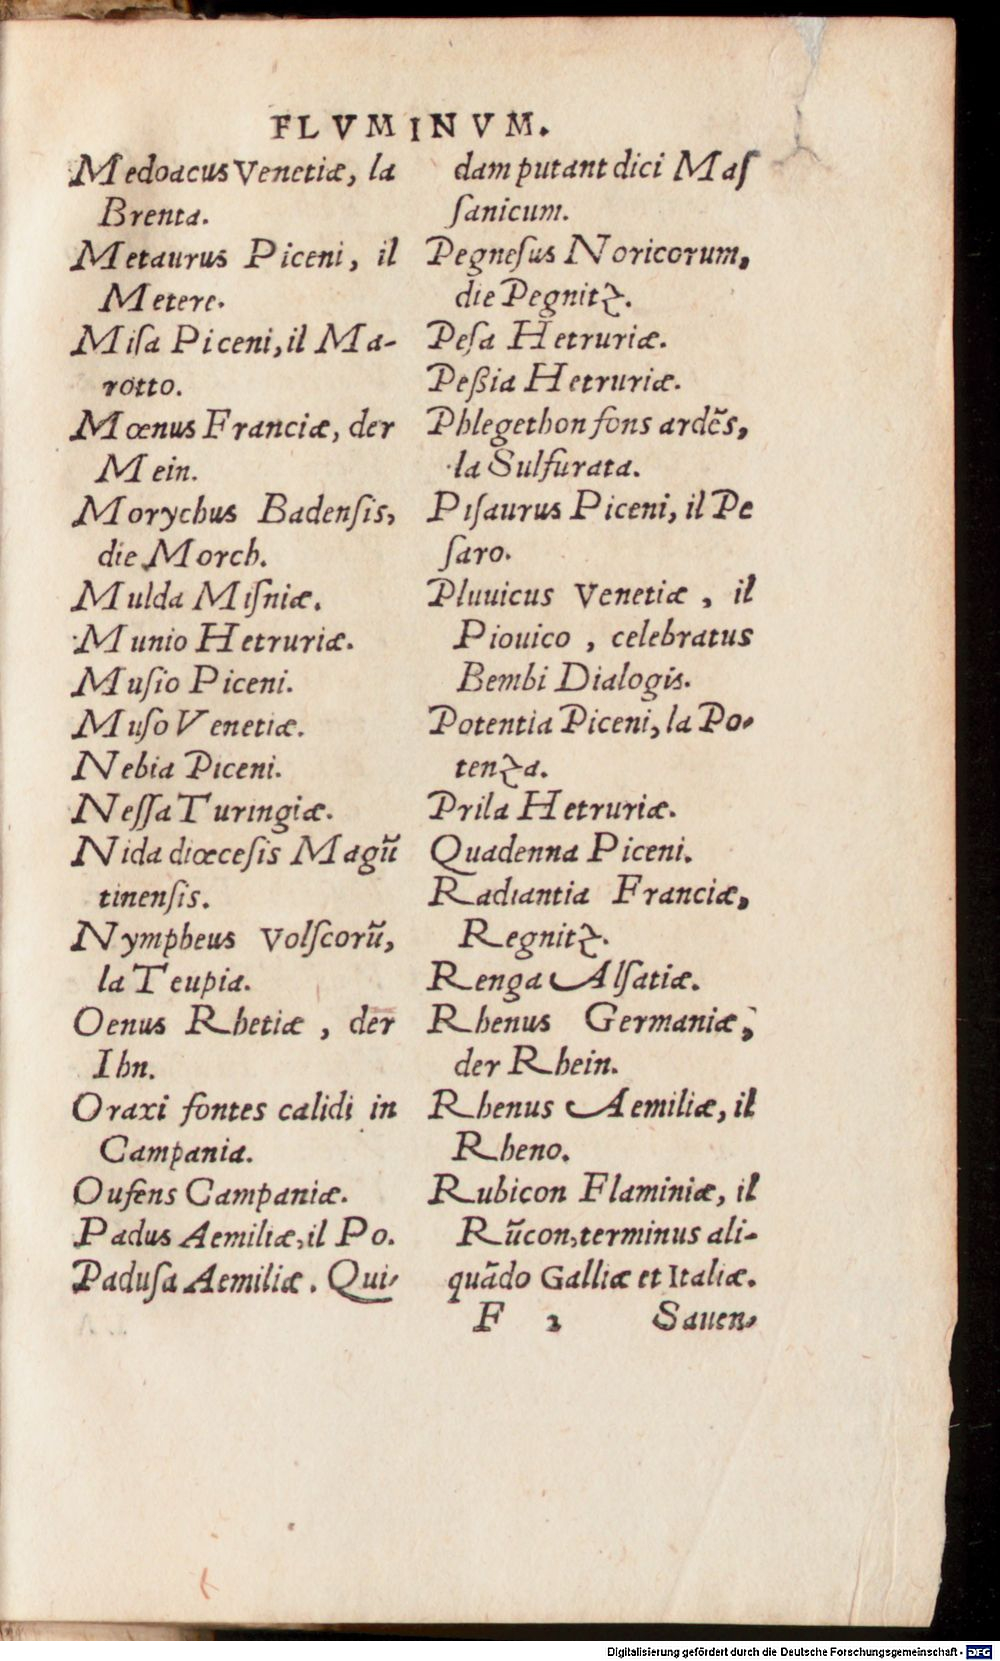 FLVMINVM.
Medoacus Venetiæ, la
Brenta.
Metaurus Piceni, il
Metere.
Miſa Piceni, il Ma-
rotto.
Mœnus Franciæ, der
Mein.
Morychus Badenſis,
die Morch.
Mulda Miſniæ.
Munio Hetruriæ.
Muſio Piceni.
Muſo Venetiæ.
Nebia Piceni.
Neſſa Turingiæ.
Nida diœceſis Magũ
tinenſis.
Nympheus Volſcorũ,
la Teupia.
Oenus Rhetiæ, der
Ihn.
Oraxi fontes calidi in
Campania.
Oufens Campaniæ.
Padus Aemiliæ, il Po.
Paduſa Aemiliæ. Qui-
dam putant dici Maſ
ſanicum.
Pegneſus Noricorum,
die Pegnitz.
Peſa Hetruriæ.
Peßia Hetruriæ.
Phlegethon fons ardẽs,
la Sulfurata.
Piſaurus Piceni, il Pe
ſaro.
Pluuicus Venetiæ, il
Piouico, celebratus
Bembi Dialogis.
Potentia Piceni, la Po-
tenza.
Prila Hetruriæ.
Quadenna Piceni.
Radiantia Franciæ,
Regnitz.
Renga Alſatiæ.
Rhenus Germaniæ,
der Rhein.
Rhenus Aemiliæ, il
Rheno.
Rubicon Flaminiæ, il
Rũcon, terminus ali-
quãdo Galliæ et Italiæ.
F 2 Sauen-
Digitalisierung gefördert durch die Deutsche Forschungsgemeinschaft - DFG